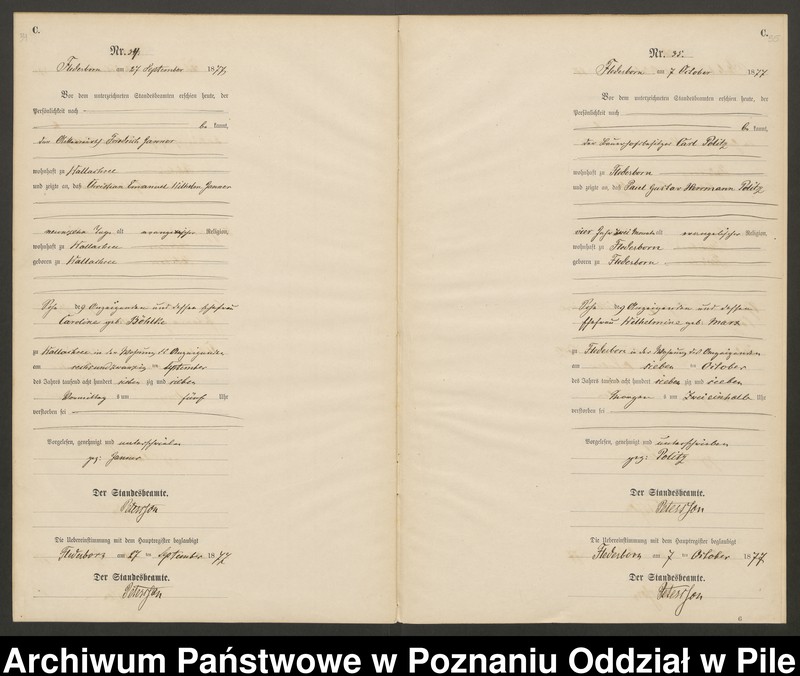 C.
Nr. 34.
Flederborn am 27 September 1877,
Vor dem unterzeichneten Standesbeamten erschien heute, der
Persönlichkeit nach
be kannt,
der Friedrich Janner
wohnhaft zu Kallachsee
und zeigte an, daß Christian Emanuel Wilhelm Janner
neunzehn Tage alt evangelischer Religion,
wohnhaft zu Kallachsee
geboren zu Kallachsee
Sohn des Anzeigenden und dessen Ehefrau
Caroline geb. Böhlke
zu Kallachsee in der Wohnung des Anzeigenden
am sechsundzwanzig ten September
des Jahres tausend acht hundert sieben zig und sieben
Vormittag s um fünf Uhr
verstorben sei
Vorgelesen, genehmigt und unterschrieben
gez: Janner
Der Standesbeamte.
Petersson
Die Uebereinstimmung mit dem Hauptregister beglaubigt
Flederborn am 27 ten September 1877
Der Standesbeamte.
Petersson
C.
35
Nr. 35.
Flederborn am 7 October 1877
Vor dem unterzeichneten Standesbeamten erschien heute, der
Persönlichkeit nach
be kannt,
der Bauerhofsbesitzer Carl Politz
wohnhaft zu Flederborn
und zeigte an, daß Paul Gustav Herrmann Politz
vier Jahr zwei Monate alt evangelischer Religion,
wohnhaft zu Flederborn
geboren zu Flederborn
Sohn des Anzeigenden und dessen
Ehefrau Wilhelmine geb. Marx
zu Flederborn in der Wohnung des Anzeigenden
am sieben ten October
des Jahres tausend acht hundert sieben zig und sieben
Morgen s um zweieinhalb Uhr
verstorben sei
Vorgelesen, genehmigt und unterschrieben
gez: Politz
Der Standesbeamte.
Petersson
Die Uebereinstimmung mit dem Hauptregister beglaubigt
Flederborn am 7 ten October 1877.
Der Standesbeamte.
Petersson
6
Archiwum Państwowe w Poznaniu Oddział w Pile